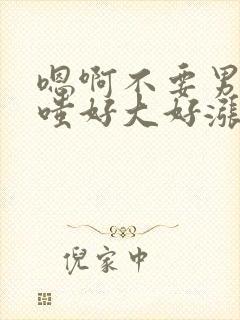 嗯啊不要男
哇好大好涨
倪家中